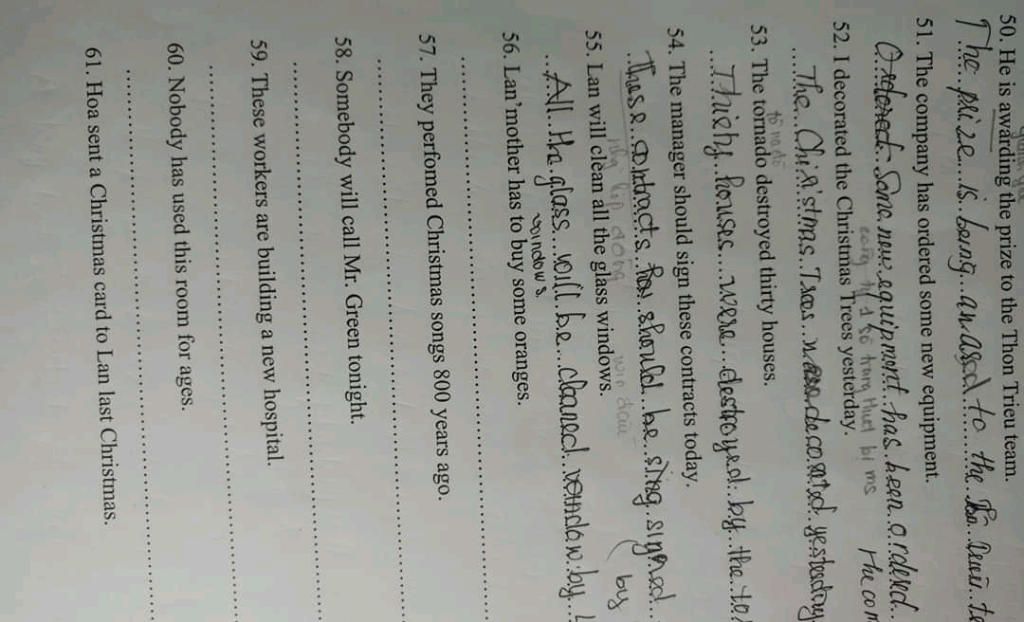 50. He is awarding the prize to the Thon Trieu team.
The prize is being to the
51. The company has ordered some new equipment.
Some new equipment has been ordered
52. I decorated the Christmas Trees yesterday.
The Christmas Trees decorated yesterday
53. The tornado destroyed thirty houses.
Thirty houses were destroyed by the
54. The manager should sign these contracts today.
These contracts should be signed (by
55. Lan will clean all the glass windows.
All the glass will be cleaned by
windows
56. Lan'mother has to buy some oranges.
57. They perfomed Christmas songs 800 years ago.
58. Somebody will call Mr. Green tonight.
59. These workers are building a new hospital.
60. Nobody has used this room for ages.
61. Hoa sent a Christmas card to Lan last Christmas.